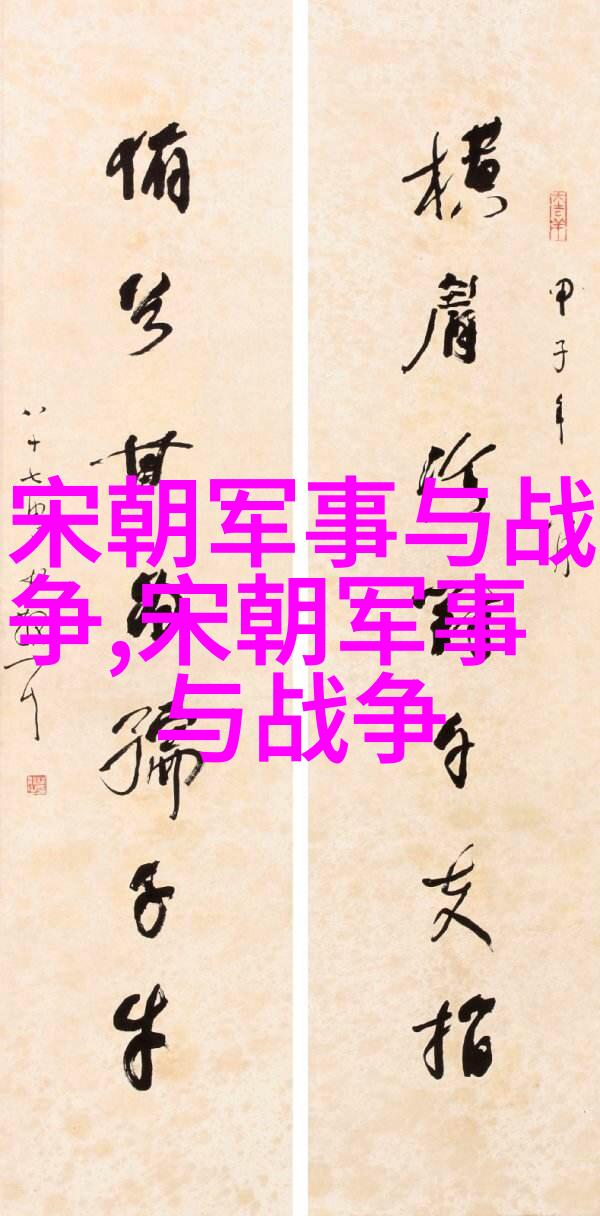 宋朝军事与战
争,宋朝军事
与战争
大吉羊
甲子年
横眉冷對千夫指
俯首甘為孺子牛
八十七叟林散之